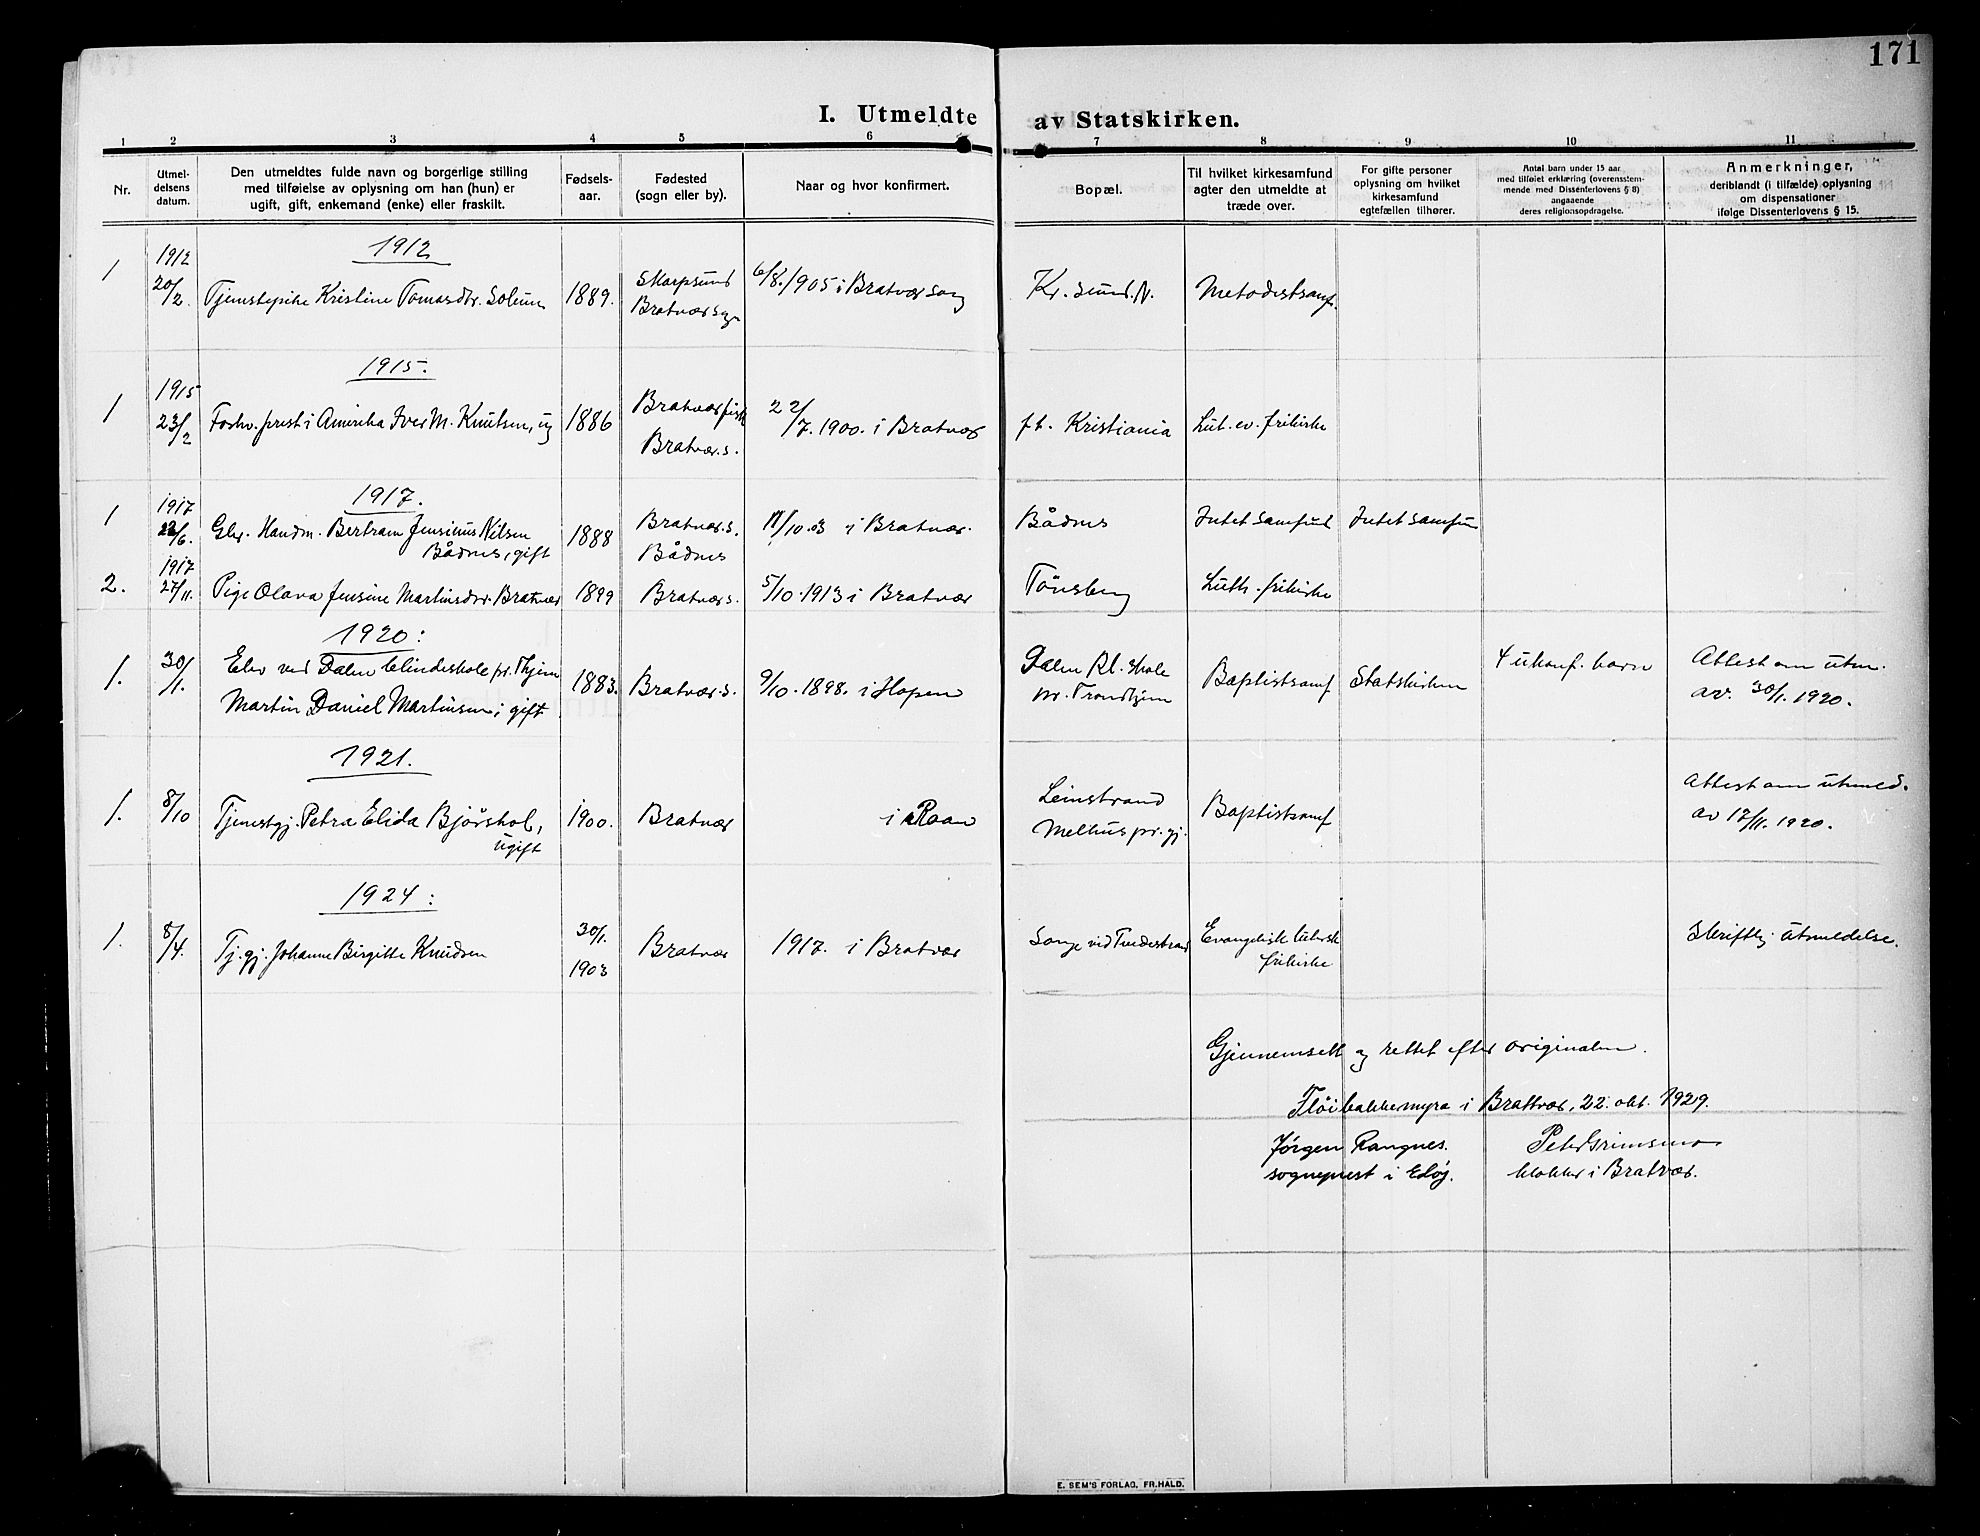 171
I. Utmeldte av Statskirken.
1 2 3 4 5 6 7 8 9 10 11
Nr.
Utmel-
delsens
datum.
Den utmeldtes fulde navn og borgerlige stilling
med tilføielse av oplysning om han (hun) er
ugift, gift, enkemand (enke) eller fraskilt.
Fødsels-
aar.
Fødested
(sogn eller by).
Naar og hvor konfirmert.
Bopæl.
Til hvilket kirkesamfund
agter den utmeldte at
træde over.
For gifte personer
oplysning om hvilket
kirkesamfund
egtefællen tilhører.
Antal barn under 15 aar
med tilføiet erklæring (overensstem-
mende med Dissenterlovens § 8)
angaaende
deres religionsopdragelse.
Anmerkninger,
deriblandt (i tilfælde) oplysning
om dispensationer
ifølge Dissenterlovens § 15.
1912
1
1912
20/2.
Tjenestepike Kristine Tomasdtr. Soleim
1889.
Skarpsund
Bratvær sogn
6/8. 1905 i Bratvær sogn
Kr.sund. N.
Metodistsamf.
1915.
1
1915
23/2
Forhv. prest i Amerika Iver M. Knutsen, ug
1886
Bratvær
Bratvær. s.
22/7. 1900. i Bratvær
pt. Kristiania
Lut. ev. frikirke
1917.
1
1917
22/6.
Handm. Bertram Jensinius Nilsen
Bådnes, gift
1888
Bratvær. s.
Bådnes
11/10. 03 i Bratvær.
Bådnes
Intet samfund
Intet samfun
2.
1917
27/11.
Pige Olava Jensine Martinsdtr. Bratvær
1899
Bratvær s.
5/10. 1913 i Bratvær
Tönsberg
Luth. frikirke
1920:
1.
30/1.
Elev ved Dalen blindeskole pr. Thjem
Martin Daniel Martinsen; gift
1883.
Bratvær. s.
9/10. 1898. i Hopen
Dalen Bl. skole
nr. Trondhjem
Baptistsamf
Statskirken
4 ukonf. barn
Attest om utm.
av. 30/1. 1920.
1921.
1.
8/10
Tjenestgj. Petra Elida Bjørshol,
ugift
1900.
Bratvær
i Roan
Leinstrand
Melhus pr.gj.
Baptistsamf
Attest om utmed.
av 17/11. 1920.
1924:
1.
8/4.
Tj. gj. Johanne Birgitte Knudsen
30/1.
1903
Bratvær
1917. i Bratvær
Songe ved Tvedestrand
Evangelisk luthersk
frikirke
Skriftlig utmeldelse.
Gjennemsett og rettet efter originalen.
Flöibakkemyra i Brattvær, 22. okt. 1929.
Jørgen Rangnes.
sogneprest i Edøy.
Peter Grimsmo
klokker i Bratvær.
E. SEM'S FORLAG, FR.HALD.